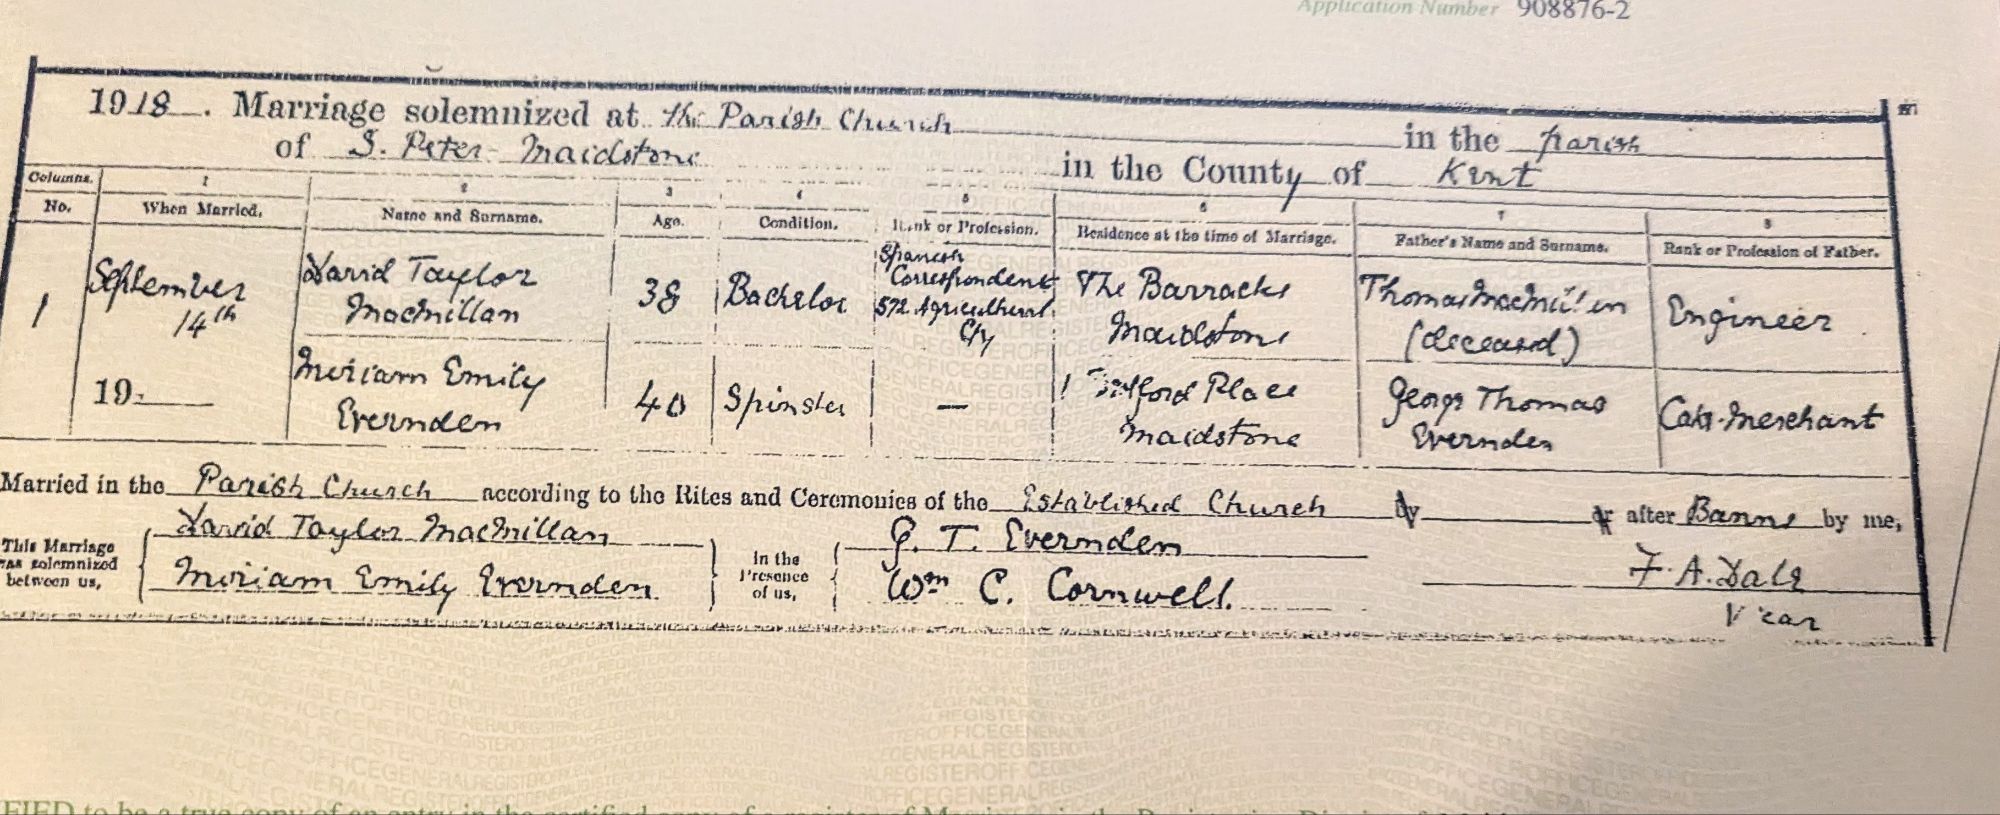 Application Number 908876-2
1918. Marriage solemnized at the Parish Church in the parish
of S. Peter Maidstone in the County of Kent
Columns. 1 2 3 4 5 6 7 8
No. When Married. Name and Surname. Age. Condition. Rank or Profession. Residence at the time of Marriage. Father's Name and Surname. Rank or Profession of Father.
1 September 14th 19
David Taylor Macmillan 38 Bachelor Spanish Correspondent 572 Agricultural Cy The Barracks Maidstone Thomas Macmillan (deceased) Engineer
Miriam Emily Evernden 40 Spinster — 1 Place Maidstone George Thomas Evernden Merchant
Married in the Parish Church according to the Rites and Ceremonies of the Established Church by or after Banns by me,
This Marriage was solemnized between us,
David Taylor MacMillan
Miriam Emily Evernden
In the Presence of us,
G. T. Evernden
Wm C. Cornwell.
F. A. Dale
Vicar
to be a true copy of an entry in the certified copy of a register of